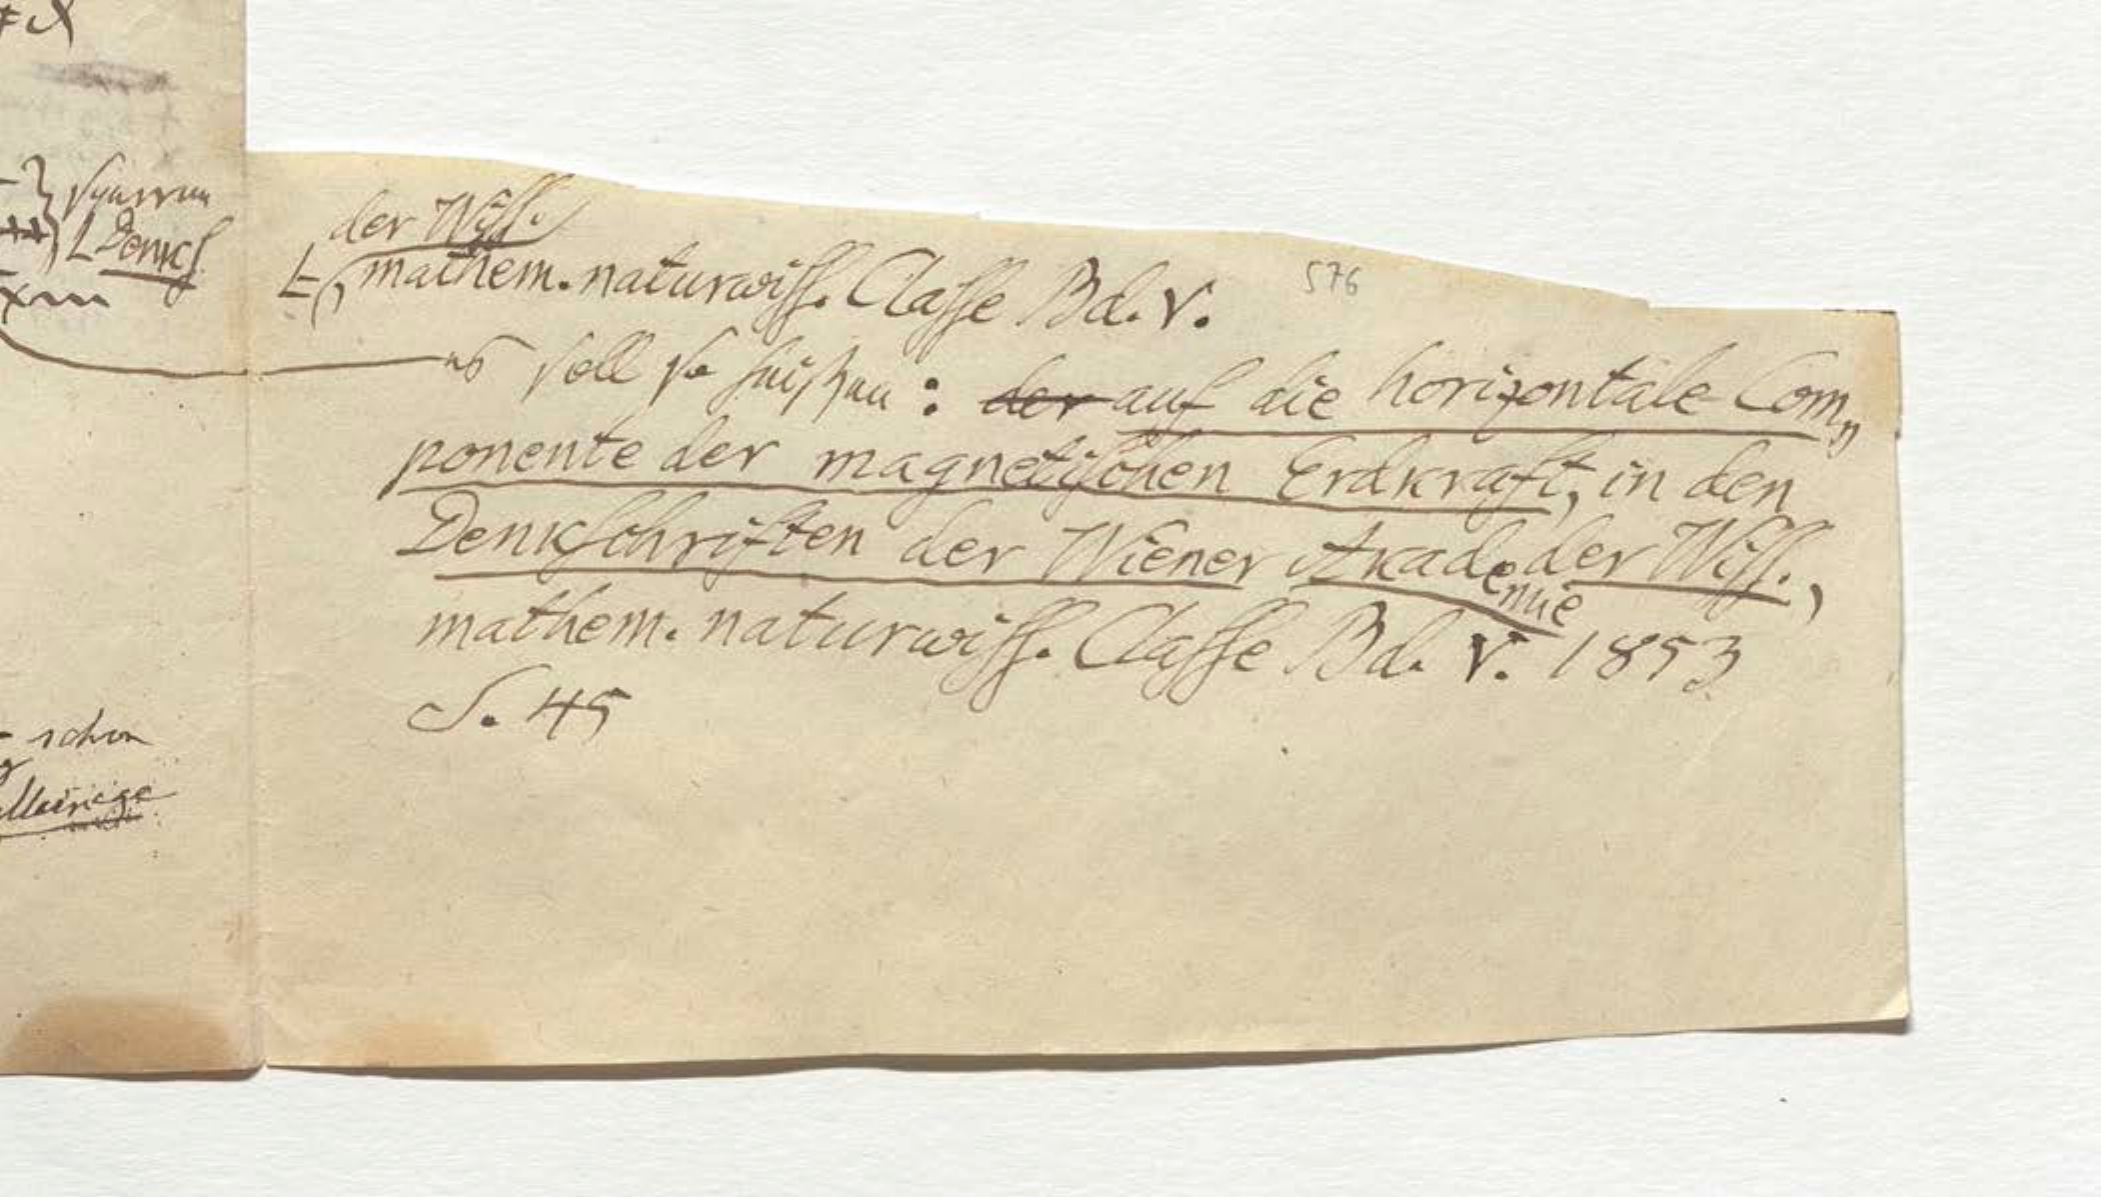 der Wiss.
mathem. naturwiss. Classe Bd. V.
576
es soll so heißen: der auf die horizontale Com„
ponente der magnetischen Erdkraft, in den
Denkschriften der Wiener Akademie der Wiss.,
mathem. naturwiss. Classe Bd. V. 1853
S. 45
Denks
schon